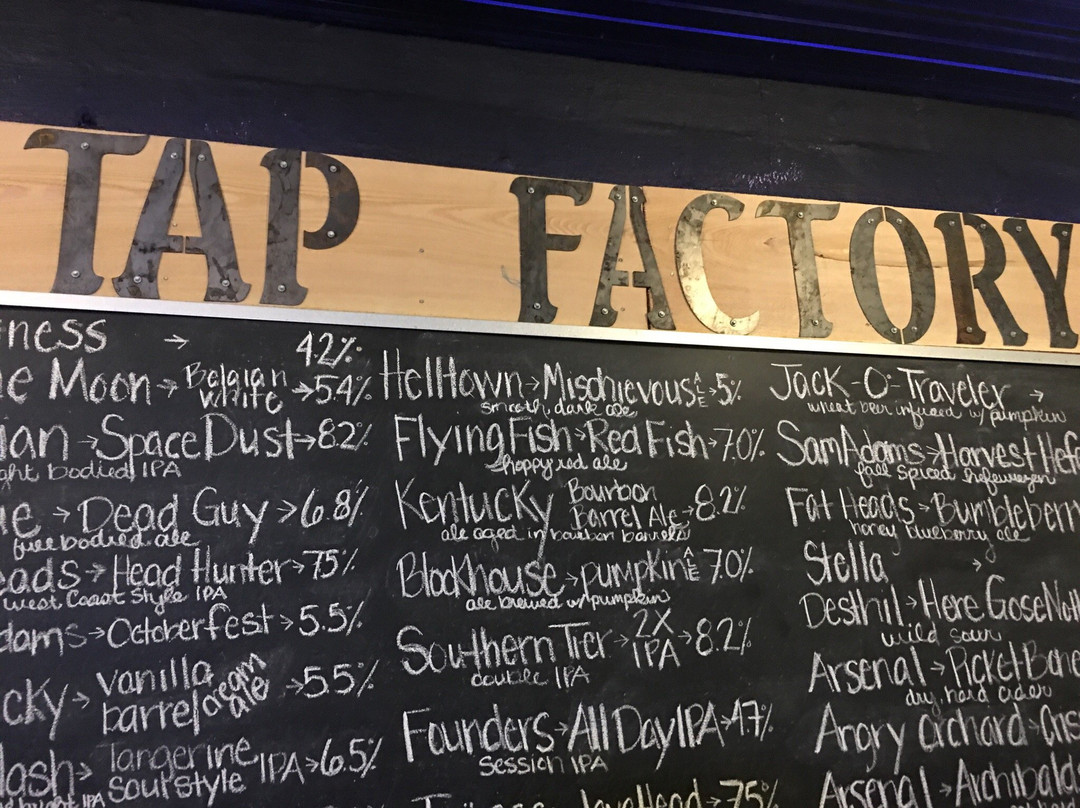 TAP FACTORY
ness → 4.2%
e Moon → Belgian White → 5.4%
ian → Space Dust → 8.2%
ght bodied IPA
ue → Dead Guy → 6.8%
full bodied ale
eads → Head Hunter → 75%
west Coast Style IPA
dams → Octoberfest → 5.5%
cky → vanilla barrel cream ale → 5.5%
lash → Tangerine Sour style IPA → 6.5%
bright IPA
Helltown → Mischievous ALE → 5%
smooth, dark ale
Flying Fish → Red Fish → 7.0%
hoppy red ale
Kentucky Bourbon Barrel Ale → 8.2%
ale aged in bourbon barrels
Blockhouse → pumpkin ALE 7.0%
ale brewed w/ pumpkin
Southern Tier → 2X IPA → 8.2%
double IPA
Founders → All Day IPA → 4.7%
session IPA
Java Head → 75%
Jack-O'-Traveler →
wheat beer infused w/ pumpkin
Sam Adams → Harvest Hefe
fall spiced hefeweizen
Fat Heads → Bumbleberr
honey blueberry ale
Stella →
Desthil → Here Gose Noth
wild sour
Arsenal → Picket Bone
dry, hard cider
Angry Orchard → Cris
Arsenal → Archibald